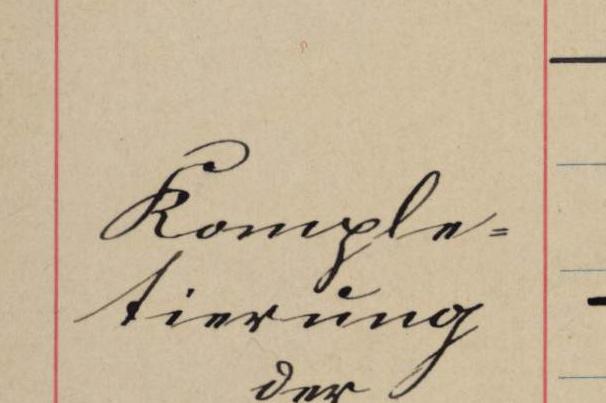 Komple=
tierung
der